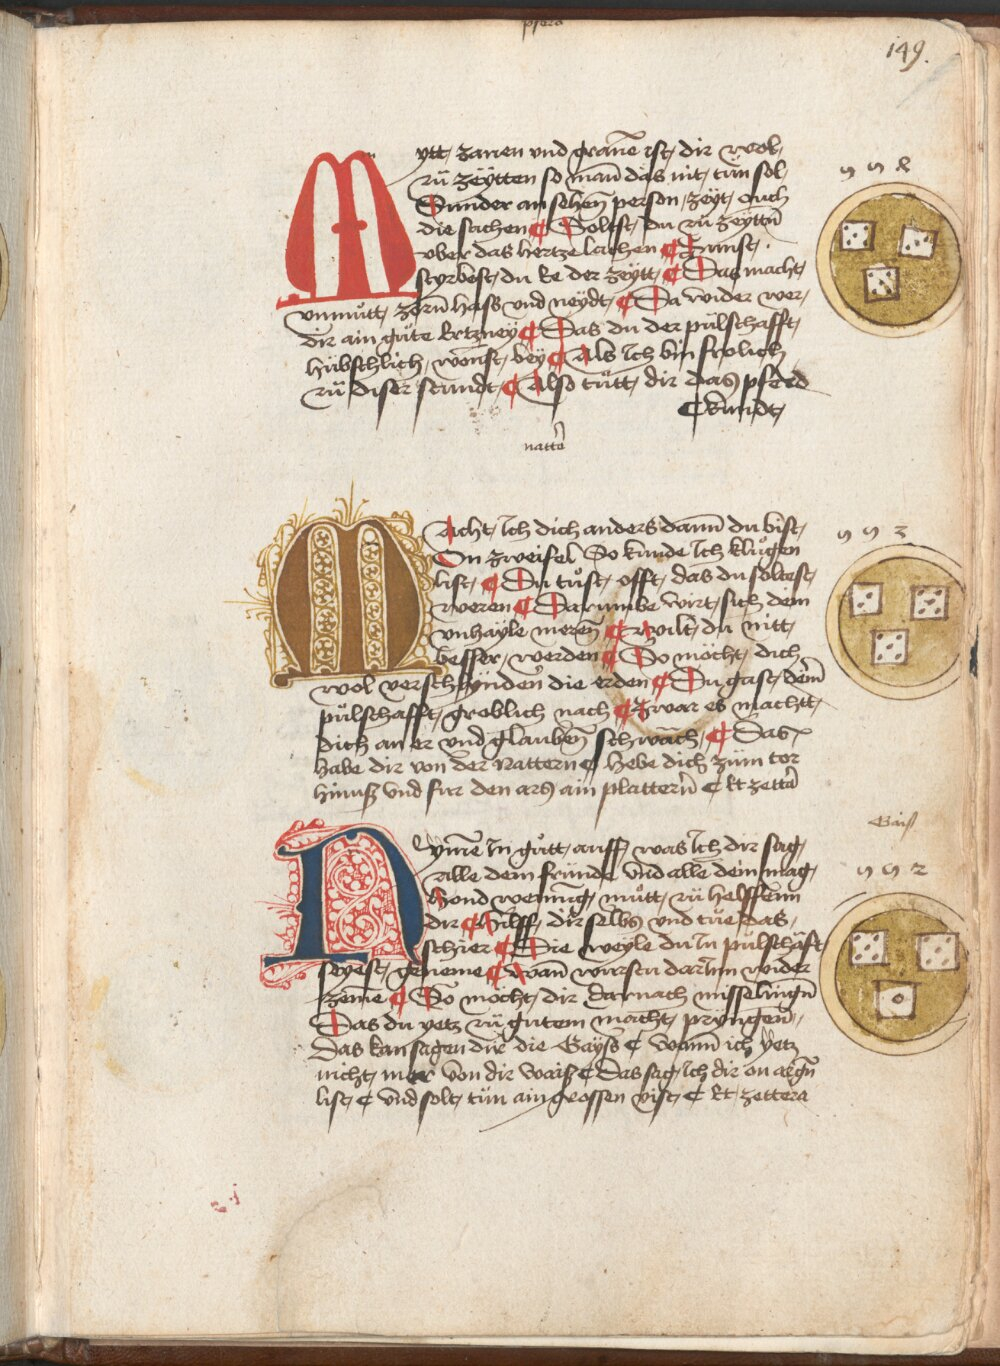 pferd
149.
Mytt zanen und grane ist dir wol
zu zeytten so man das nit tun sol
Sunder an sehen person zeyt ouch
die sachen Soltest du zu zeyttn
vber das hertze lachen Sunst
styrbest du ee der zeytt Das macht
vnmutt zorn hass und neydt Da wider wer
dir ain gute Ertzney Das du der pulschafft
hubschlich wonst bey Als Ich bin frolich
zu diser stundt Also tutt dir das pferd
kundt
9 9 4
natter
Macht Ich dich anders dann du bist
On zweifel So kunde Ich klugen
list Du tust offt das du soltest
weren Darumbe wirt sich dem
vnhayle meren wilt du nitt
besser werden So mocht dich
wol verschlynden die erden Du gast dem
pulschafft groblich nach zwar es machtt
dich an er und glauben schwach Das
habe dir von der Nattern hebe dich zum tor
hinuß vnd fur den ars ain plattern et zetter
9 9 3
Gaiß
Nyme In gutt auff was Ich dir sag
alle dein frunde vnd alle dein mag
hond wening mutt zu helffenn
dir Hilff dir selbs und tue das
schier Die weyle du In pulschafft
seyest grueme wan wirstu darInn wider
zeme So mocht dir darnach misselingen
Das du yetz zu gutem macht pryngen
Das kan sagen dir die Gayß wann ich yetz
nicht mer von dir waiß Das sag Ich dir on argen
list vnd solt tun ain grossen vist et zettera
9 9 2